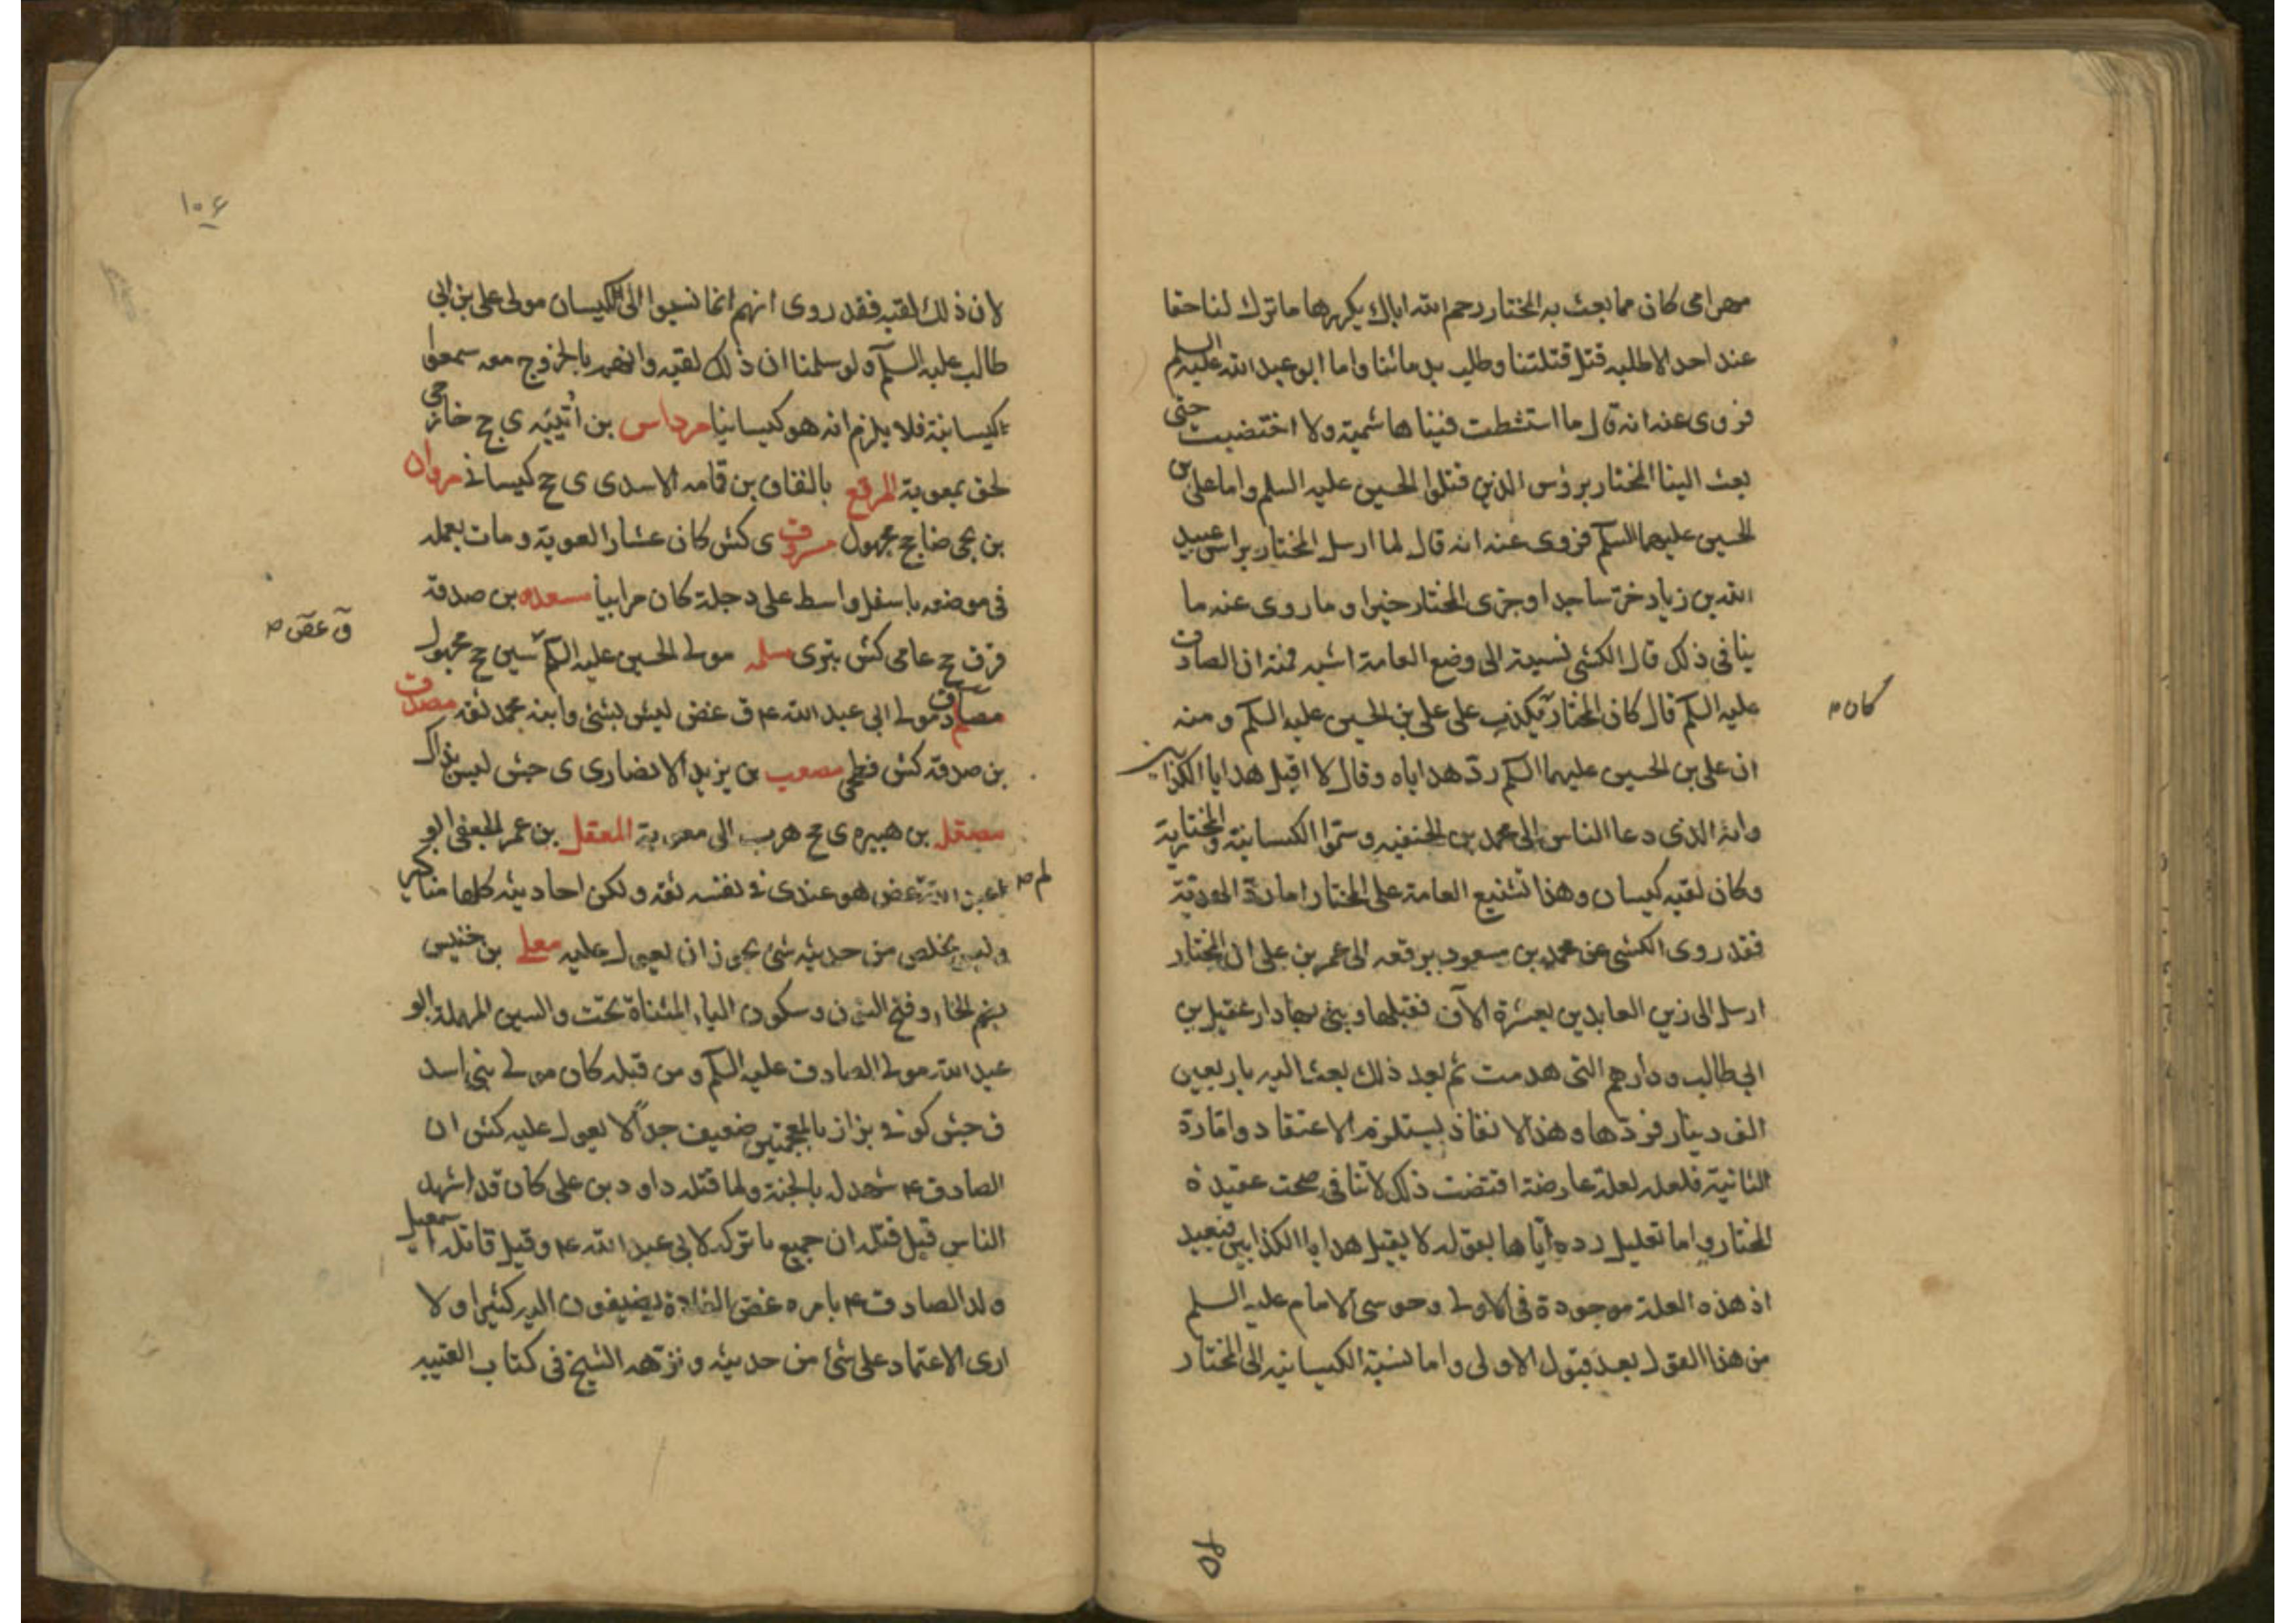 مهرامى كان مما بعث به المختار رحم الله اباك يكررها ماترك لنا حقا
عند احد الا طلبه قتل قتلتنا وطلب بدمائنا واما ابو عبد الله عليه السلم
فروى عنه انه قال ما امتشطت فينا هاشمية ولا اختضبت حتى
بعث الينا المختار برؤس الذين قتلوا الحسين عليه السلم واما على بن
الحسين عليهما السلم فروى عنه انه قال لما ارسل المختار براس عبيد
الله بن زياد خر ساجدا وجزى المختار خيرا وما روى عنه ما
ينافى ذلك قال الكشى نسبته الى وضع العامة اشبه فمنه ان الصادق
عليه السلم قال كان المختار يكذب على على بن الحسين عليه السلم ومنه
كان
ان على بن الحسين عليهما السلم رد هداياه وقال لا اقبل هدايا الكذابين
وانه الذى دعا الناس الى محمد بن الحنفيه وسموا الكيسانية والمختارية
وكان لقبه كيسان وهذا تشنيع العامة على المختار اما رد الهدية
فقد روى الكشى عن محمد بن مسعود برفعه الى عمر بن على ان المختار
ارسل الى زين العابدين بعشرة الآف فقبلها وبنى بها دار عقيل بن
ابى طالب ودارهم التى هدمت ثم بعد ذلك بعث اليه باربعين
الف دينار فردها وهذا الانفاذ يستلزم الاعتقاد واما رده
الثانية فلعله لعلة عارضة اقتضت ذلك لا تنافى صحت عقيدة
المختار واما تعليل رده اياها بقوله لا يقبل هدايا الكذابين فبعيد
اذ هذه العلة موجودة فى الاولى وحوسى الامام عليه السلم
من هذا القول بعد قبول الاولى واما نسبة الكيسانيه الى المختار
٥٢
١٠٦
لان ذلك لقبه فقد روى انهم انما نسبوا الى الكيسان مولى على بن ابى
طالب عليه السلم ولو سلمنا ان ذلك لقبه وانهم بالخروج معه سموا
كيسانية فلا يلزم انه هو كيسانيا مرداس بن أديّه ى ج خارجى
لحق بمعوية المرقع بالقاف بن قامه الاسدى ى ج كيسانى مروان
بن يحى ضا ج مجهول مسروق ى كش كان عشارا لمعوية ومات بعمله
فى موضعه باسفل واسط على دجلة كان مرابيا مسعده بن صدقة
قر ق ج عامى كش بترى مسلمه مولى الحسين عليه السلم سين ج مجهول
ق عض
مصادف مولى ابى عبد الله ع ق غض ليس بشئ وابنه محمد ثقه مصدق
بن صدقه كش فطحى مصعب بن يزيد الانصارى ى جش ليس بذاك
مصقله بن هبيره ى ج هرب الى معوية المعقل بن عمر الجعفى ابو
لم
عبد الله غض هو عندى فى نفسه ثقه ولكن احاديثه كلها مناكير
وليس يخلص من حديثه شئ يجوز ان يعول عليه معلى بن خنيس
بضم الخاء وفتح النون وسكون الياء المثناة تحت والسين المهملة ابو
عبد الله مولى الصادق عليه السلم ومن قبله كان مولى بنى اسد
ق جش كوفى بزاز بالمعجمتين ضعيف جداً لا يعول عليه كش ان
الصادق ع شهد له بالجنة ولما قتله داود بن على كان قد اشهد
الناس قبل قتله ان جميع ما تركه لابى عبد الله ع وقيل قاتله اسمعيل
ولد الصادق ع بامره غض الغلاة يضيفون اليه كثيرا ولا
ارى الاعتماد على شئ من حديثه ونزهه الشيخ فى كتاب الغيبه